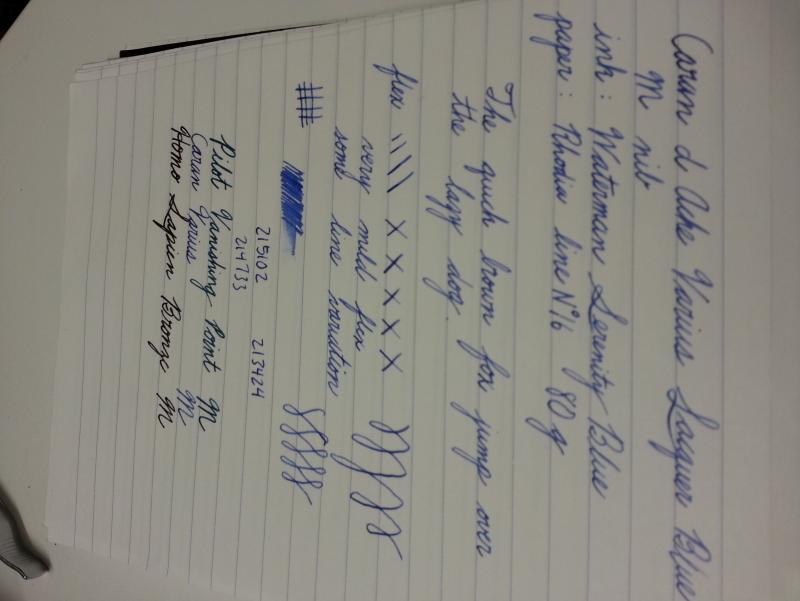 Caran d Ache Varius Laquer Blue
M nib
ink: Waterman Serenity Blue
paper: Rhodia line N°16 80g
The quick brown fox jump over
the lazy dog.
flex \\\\ x x x x x
very mild flex
some line variation
215102 213424
214733
Pilot Vanishing Point M
Caran Varius M
Homo Sapien Bronze M